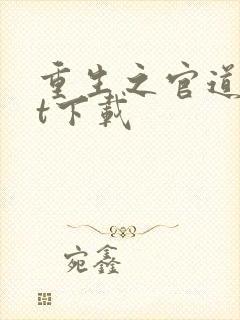 重生之官道
t下载
宛鑫